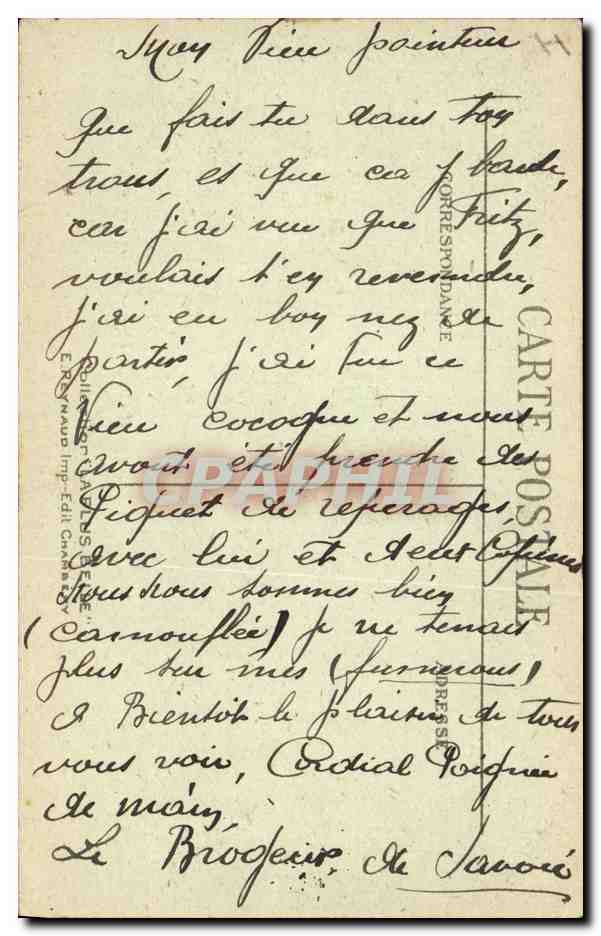 Mon Vieu pointeur
que fais tu dans ton
trous, es que ca barde,
car j'ai vue que Fritz,
voulais t'en revendre,
j'ai eu bon nez de
partir, j'ai Vue ce
Vieu cocoque et nous
avont été prendre des
Piquet de reperages,
avec lui et deux
Nous nous sommes bien
(camouflée) Je ne tenais
plus sur mes (fumerons)
A Bientôt le plaisir de tous
vous voir, Cordial Poignée
de main,
Le Brodeur de Savoie
CARTE POSTALE
CORRESPONDANCE
ADRESSE
Collection "LA PLUS BELLE"
E. REYNAUD Imp-Edit CHAMBERY
CPAPHIL